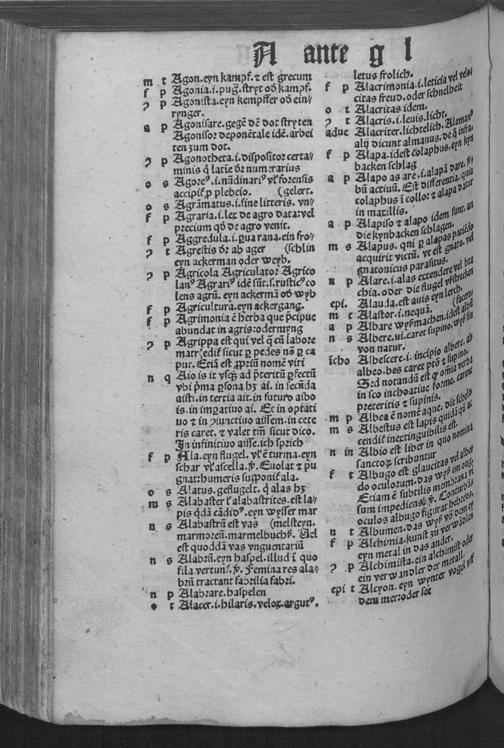 A ante g l
m t Agon. eyn kampf. & est grecum
f p Agonia. i. pug͂. stryt od͛ kampf.
ꝯ p Agonista. eyn kempffer od͛ ein/
rynger.
a p Agonisare. gegē dē dot stryten
Agonisor deponētale idē. arbei
ten zum dot.
ꝯ p Agonotheta. i. dispositor certa/
minis
o s i. nūdinari⁹ vl̛ forensis
plebeio. (gelert.
o s Agrāmatus. i. sine litteris. vn/
f p Agraria. i. lex de agro data: vel
precium qd̛ de agro venit.
f p Aggredula. i. rana. ein fro/
ꝯ t Agrestis ab ager (schlin
eyn ackerman oder weyb.
ꝯ p Agricola Agriculator Agrico
lan⁹ Agrari⁹ idē sūt. s. rustic⁹ co
lens agrū. eyn ackermā od͛ wyb
f p Agricultura. eyn ackergang.
f p Agrimonia ē herba que p̄cipue
abundat in agris: odermyng
ꝯ p Agrippa est qui vel q̄ cū labore
matr̄ sicut pedes
put. Etiā est nomē viri
n q Aio is it
ai. in secūda
aisti. in tertia ait. in futuro aibo
is. in impatiuo ai. Et in optati
uo & in aissem. in cete
ris caret. & valet tm̄ sicut dico.
In infinitiuo aisse. ich sprich
f p Ala. eyn flugel. vl̛ ē turma. eyn
schar vl̛ ascella. Euolat & pu
gnat: humeris supponit̛ ala.
o s Alatus. geflugelt. q̄ alas hꝫ
m s Alabaster l̛ alabastrites. est la/
pis qdā cādid⁹. eyn wysser mar
n s Alabastrū est vas (melsteyn.
marmoreū. marmelbuchs. Uel
est quoddā vas vnguentariū
n s Alabrū. eyn haspel. illud i quo
fila vertunt̛. Femina res ala/
brū tractant fabrilia fabri.
n p Alabrare. haspelen
o t Alacer. i. hilaris. velox. argut⁹.
letus frolich.
f p Alacrimonia. i. leticia vel velo/
citas freud. oder schnelheit
o t Alacritas idem.
ꝯ t Alacris. i. leuis. licht.
adue Alacriter. lichtelich. Aleman⁹
alij dicunt almanus. de q̄ infra.
f p Alapa. idest colaphus. eyn kyn
backen schlag
a p Alapo as are. i. alapā dare.
bū actiuū. Est differentia. quia
colaphus i collo: & alapa datur
in maxillis.
a p Alapiso & alapo idem sunt. an
die kynbacken schlagen.
m s Alapus. qui alapas patiēdo
acquirit victū. vt est gnato. vel
gnatonicus parasitus.
n p Alare. i. alas extendere vel bra
chia. oder die flugel vßstrecken
epi. Alauda. est auis eyn lerch.
m t Alastor. i. nequā. (facere
a p Albare wyß machen. idest albū
n s Albere. ui. caret supino. wyß sin
von natur.
īcho Albescere. i. incipio albere. ab
albeo. bes caret p̄to & supino.
Sed notandū est q̄ omia verba
in sco inchoatiue forme. carent
preteritis & supinis.
m p Albea ē nomē aque. die schelp
m s Albestus est lapis quidā
cendit̛ inextinguibilis est.
n in Albio est liber in quo nomina
sanctoꝝ scribuntur
f t Albugo est glaucitas vel albe/
do oculorum. das wyß im oug.
Etiam ē subtilis membrana vi
sum impediens.
oculos albugo figurat hebetes.
n t Albumen. das wyß vō dem ey
f p Alchimia. kunst zu verwādlen
eyn metal in das ander.
ꝯ p Alchimista. ein alchimist oder
ein verwandler der metall.
epi t Alcyon. eyn wynter vogel vff
dem mer: oder see